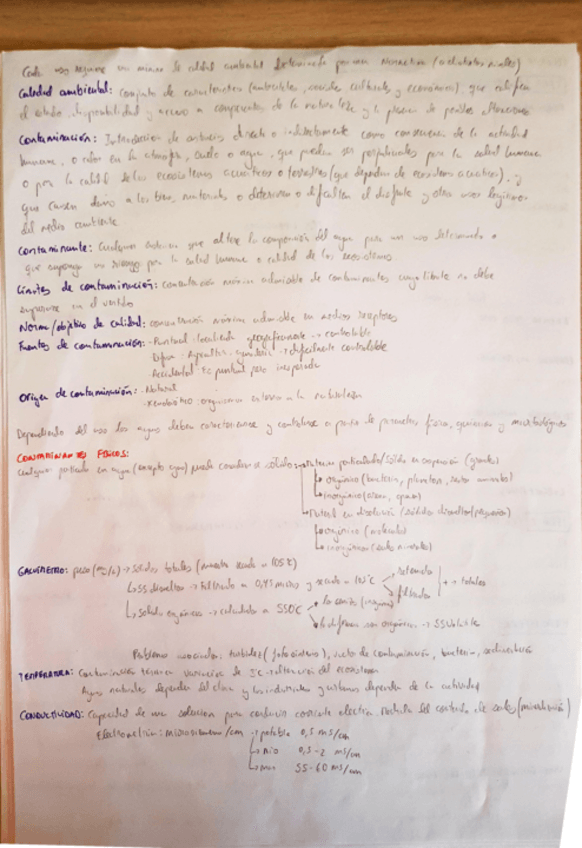 Cada uso requiere un mínimo de calidad ambiental determinada por una Normativa
Calidad ambiental: Conjunto de características (ambientales, sociales, culturales y económicas) que califican
el estado, disponibilidad y acceso a componentes de la naturaleza y la presencia de posibles alteraciones
Contaminación: Introducción de sustancias directa o indirectamente como consecuencia de la actividad
humana, o calor en la atmósfera, suelo o agua, que puedan ser perjudiciales para la salud humana
o para la calidad de los ecosistemas acuáticos o terrestres (que dependen de ecosistemas acuáticos), y
que causen daño a los bienes materiales o deterioren o dificulten el disfrute y otros usos legítimos
del medio ambiente
Contaminante: Cualquier sustancia que altere la composición del agua para un uso determinado o
que suponga un riesgo para la salud humana o calidad de los ecosistemas
Límites de contaminación: concentración máxima admisible de contaminantes cuyo límite no debe
superarse en el vertido
Norma/objetivo de calidad: concentración máxima admisible en medios receptores
Fuentes de contaminación: - Puntual: localizada geográficamente → controlable
Difusa - Agricultura - ganadería → difícilmente controlable
- Accidental: puntual pero inesperada
Origen de contaminación: - Natural
- Xenobiótico: organismo externo a la
Dependiendo del uso las aguas deben caracterizarse y controlarse a partir de parámetros físicos, químicos y microbiológicos
CONTAMINANTES FÍSICOS:
Cualquier partícula en agua (excepto agua) puede considerarse sólido: → Materia particulada/sólido en suspensión (grande)
↳ orgánico (bacteria, plancton, restos animales)
↳ inorgánico (arena,
↳ Material en disolución (sólidos disueltos/pequeños)
↳ orgánico (molécula)
↳ inorgánicos
GRAVIMETRÍA: peso → sólidos totales (muestra secada a 105°C)
↳ SS disueltos → Filtrado a 0,45 micras y secado a 105°C → retenido
→ filtrado → totales
↳ Sólido orgánico → calcinado a 550°C → la ceniza (inorgánico)
→ la diferencia son orgánicos → SS Volátiles
Problemas asociados: turbidez (fotosíntesis), de contaminación, bacterias, sedimentación
TEMPERATURA: Contaminación térmica variación de 3°C → alteración del ecosistema
Aguas naturales dependen del clima y las industriales y urbanas dependen de la actividad
CONDUCTIVIDAD: Capacidad de una solución para conducir corriente eléctrica. Medida del contenido de sales (mineralización)
/cm → potable 0,5 mS/cm
↳ río 0,5-2 mS/cm
↳ mar 55-60 mS/cm